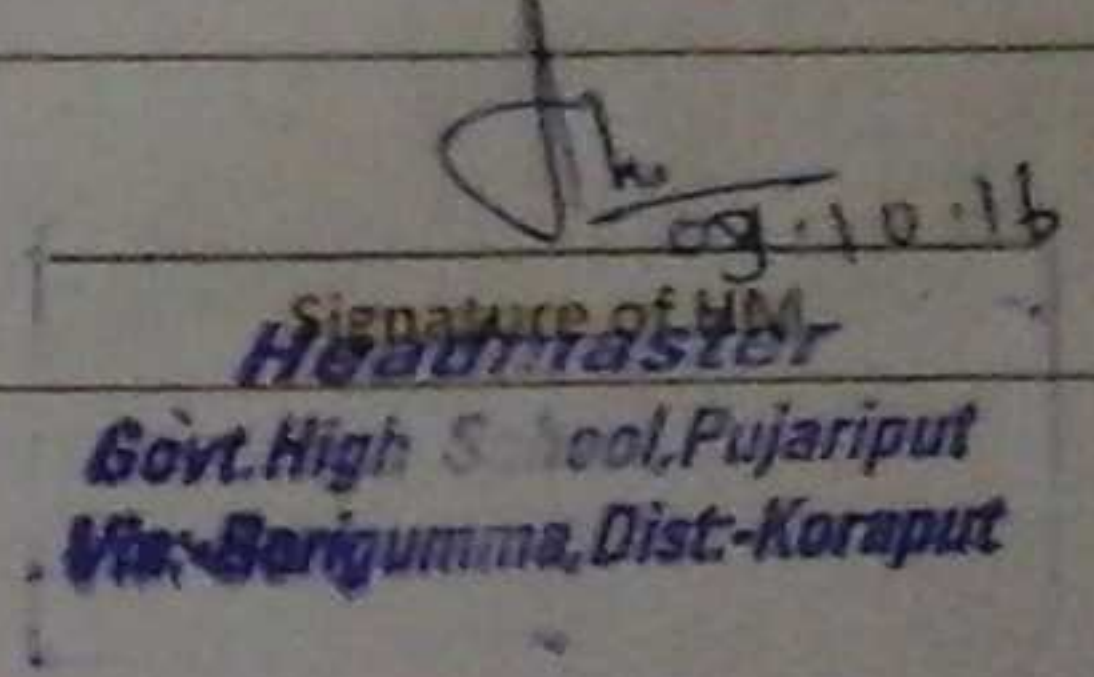 09.10.16
Signature of HM
Headmaster
Govt. High School, Pujariput
Via:-Borigumma, Dist:-Koraput